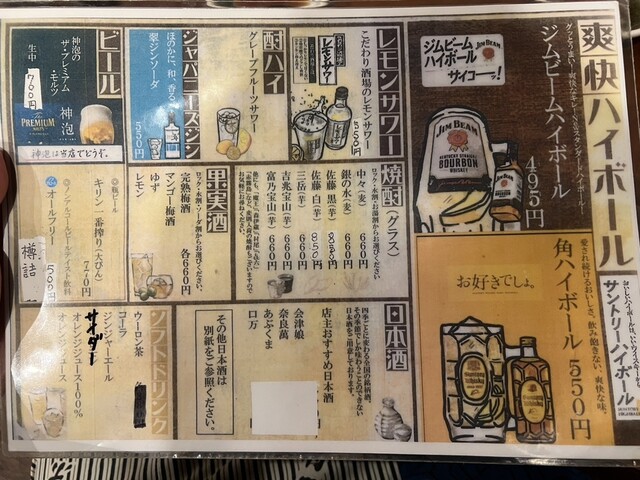 爽快ハイボール
おいしいハイボールは、いいウイスキーから。
サントリーハイボール
グッとうまい!爽快なキレ!No.1スタンダードハイボール!
ジムビームハイボール
495円
ジムビーム
ハイボール
サイコーッ!
JIM BEAM
JIM BEAM
KENTUCKY STRAIGHT
BOURBON
WHISKEY
愛され続けるおいしさ。飲み飽きない、爽快な味。
角ハイボール
550円
お好きでしょ。
レモンサワー
こだわり酒場のレモンサワー
550円
こだわり酒場の
レモンサワー
酎ハイ
グレープフルーツサワー
ジャパニーズジン
ほのかに、和、香る。
翠ジンソーダ
550円
ビール
神泡の
ザ・プレミアム・モルツ
生中
760円
神泡
The PREMIUM MALT'S
神泡は当店でどうぞ。
焼酎(グラス)
ロック・水割・お湯割からお選びください
中々(麦) 660円
銀の水(麦) 660円
佐藤 黒(芋)
佐藤 白(芋) 850円
三岳(芋) 660円
吉兆宝山(芋) 660円
富乃宝山(芋) 660円
果実酒
ロック・水割・ソーダ割からお選びください
完熟梅酒
マンゴー梅酒
ゆず
レモン
各660円
◎瓶ビール
キリン 一番搾り(大びん) 770円
◎ノンアルコールビールテイスト飲料
オールフリー 500円
樽詰
日本酒
四季ごとに変わる全国の銘柄酒。
その季節でしか味わうことのできない
日本酒をご用意しております。
店主おすすめ日本酒
会津娘
奈良萬
あぶくま
ロ万
その他日本酒は
別紙をご参照ください。
ソフトドリンク
ウーロン茶
コーラ
ジンジャーエール
サイダー
オレンジジュース100%
オレンジジュース